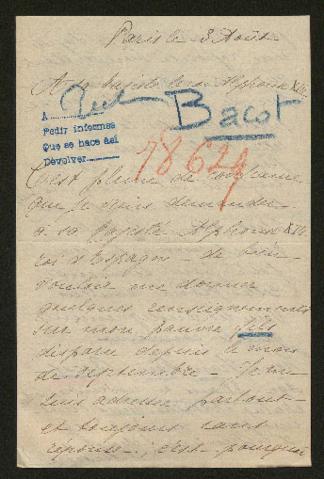 Paris le 3 Août
A sa Majesté le roi Alphonse XIII
A
Bacot
Pedir informes
Que se hace así
Devolver
78624
C'est pleine de confiance
que je viens demander
à sa Majesté Alphonse XIII
roi d'Espagne - de bien
vouloir me donner
quelques renseignements
sur mon pauvre fils
disparu depuis le mois
de septembre - Je me
suis adressée partout -
et toujours sans
réponse - c'est pourquoi